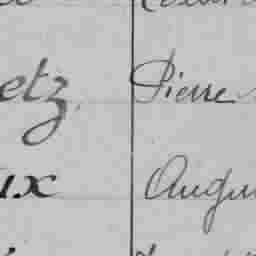 etz. Pierre
ux Augu